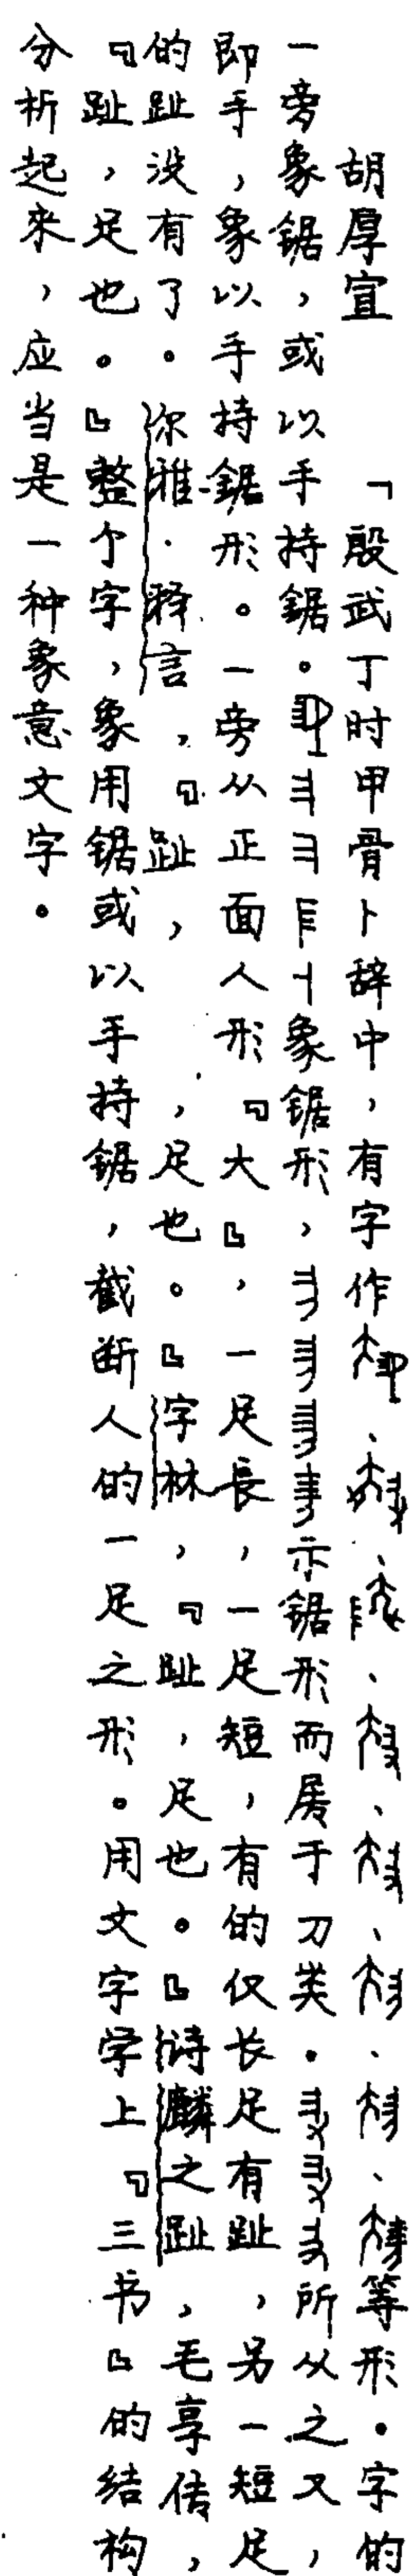 胡厚宣　「殷武丁时甲骨卜辞中，有字作、、、、、、、等形。字的
一旁象锯，或以手持锯。象锯形，示锯形而属于刀类。所从之又，
即手，象以手持锯形。一旁从正面人形『大』，一足長，一足短，有的仅长足有趾，另一短足，
的趾没有了。尔雅·释言，『趾，足也。』字林，『趾，足也。』诗麟之趾，毛享传，
『趾，足也。』整个字，象用锯或以手持锯，截断人的一足之形。用文字学上『三书』的结构
分析起来，应当是一种象意文字。